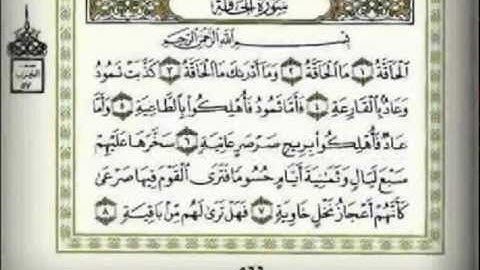 سُورَةُ الْحَاقَّةِ
بِسْمِ اللَّهِ الرَّحْمَٰنِ الرَّحِيمِ
الْحَاقَّةُ ١ مَا الْحَاقَّةُ ٢ وَمَا أَدْرَاكَ مَا الْحَاقَّةُ ٣ كَذَّبَتْ ثَمُودُ
وَعَادٌ بِالْقَارِعَةِ ٤ فَأَمَّا ثَمُودُ فَأُهْلِكُوا بِالطَّاغِيَةِ ٥ وَأَمَّا
عَادٌ فَأُهْلِكُوا بِرِيحٍ صَرْصَرٍ عَاتِيَةٍ ٦ سَخَّرَهَا عَلَيْهِمْ
سَبْعَ لَيَالٍ وَثَمَانِيَةَ أَيَّامٍ حُسُومًا فَتَرَى الْقَوْمَ فِيهَا صَرْعَىٰ
كَأَنَّهُمْ أَعْجَازُ نَخْلٍ خَاوِيَةٍ ٧ فَهَلْ تَرَىٰ لَهُم مِّن بَاقِيَةٍ ٨
الحزب
٥٧